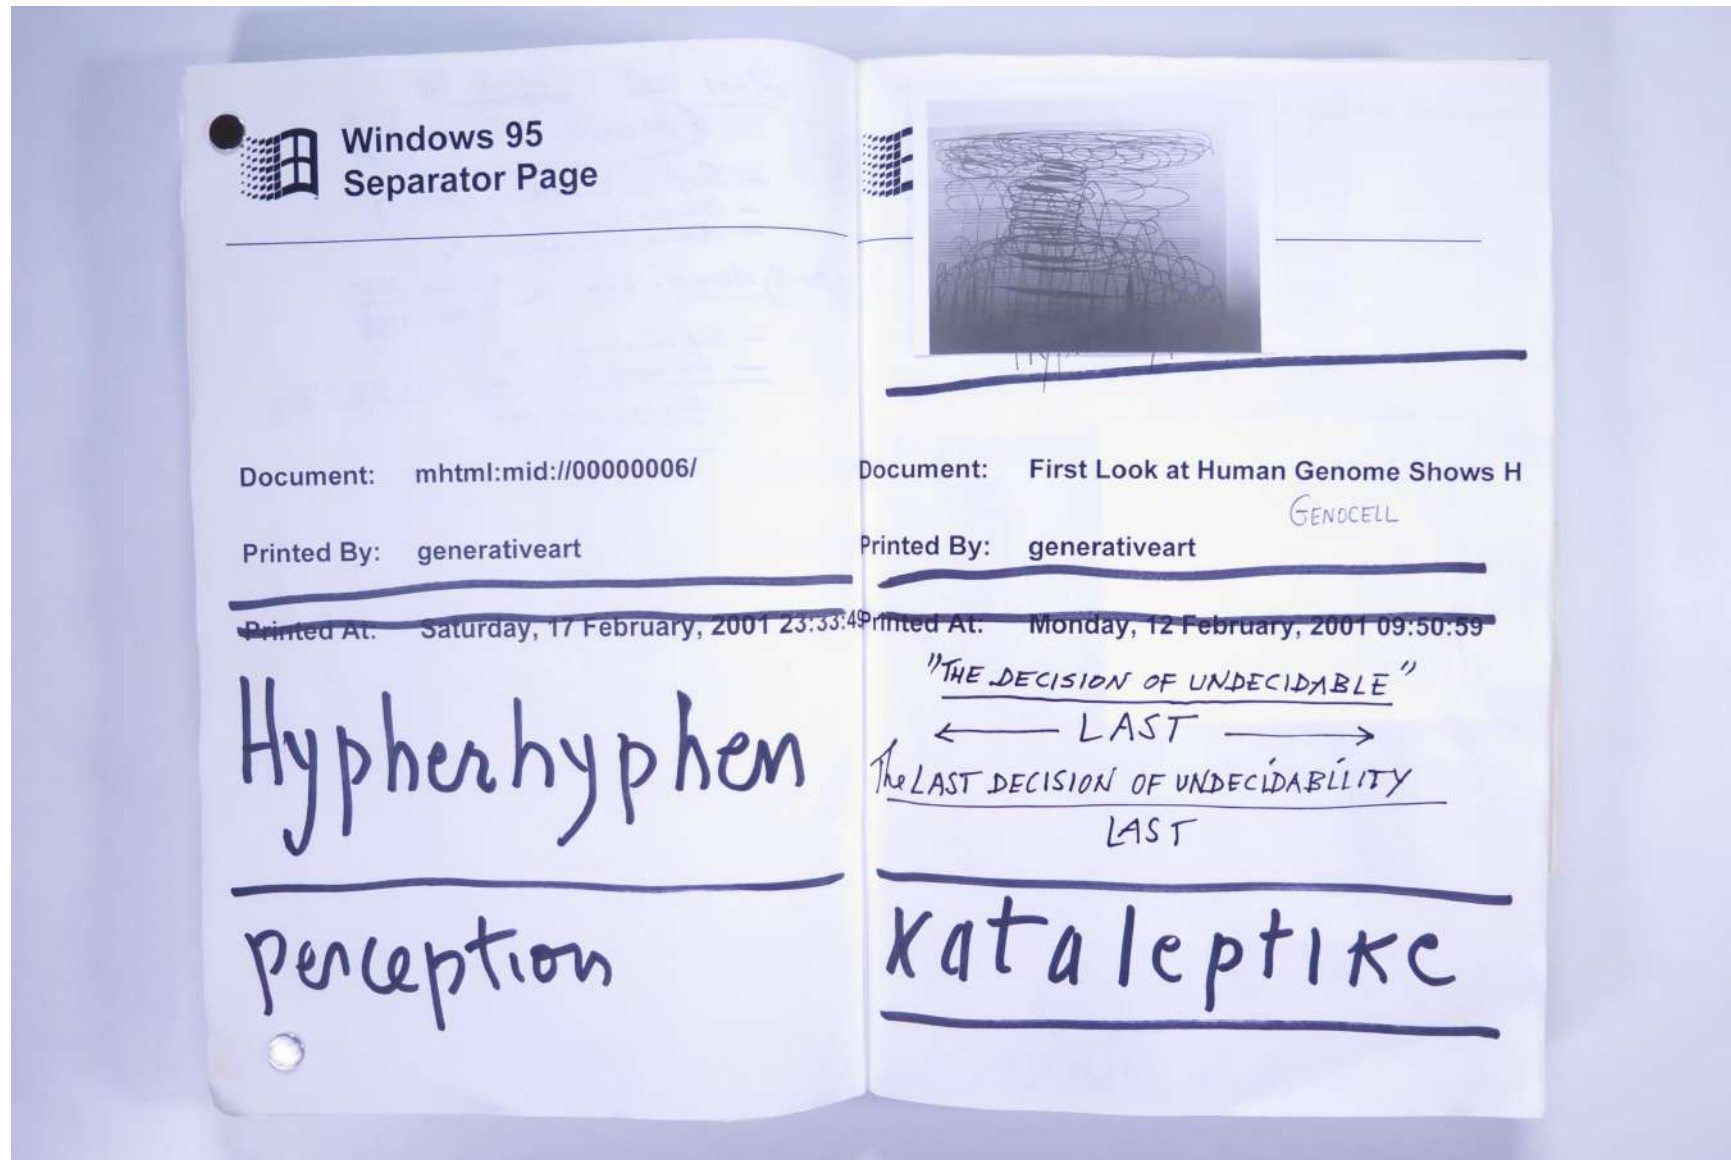 Windows 95
Separator Page
Document: mhtml:mid://00000006/
Printed By: generativeart
Printed At: Saturday, 17 February, 2001 23:33:49
Hypherhyphen
perception
Document: First Look at Human Genome Shows H
GENOCELL
Printed By: generativeart
Printed At: Monday, 12 February, 2001 09:50:59
"THE DECISION OF UNDECIDABLE"
LAST
The LAST DECISION OF UNDECIDABILITY
LAST
Kataleptike